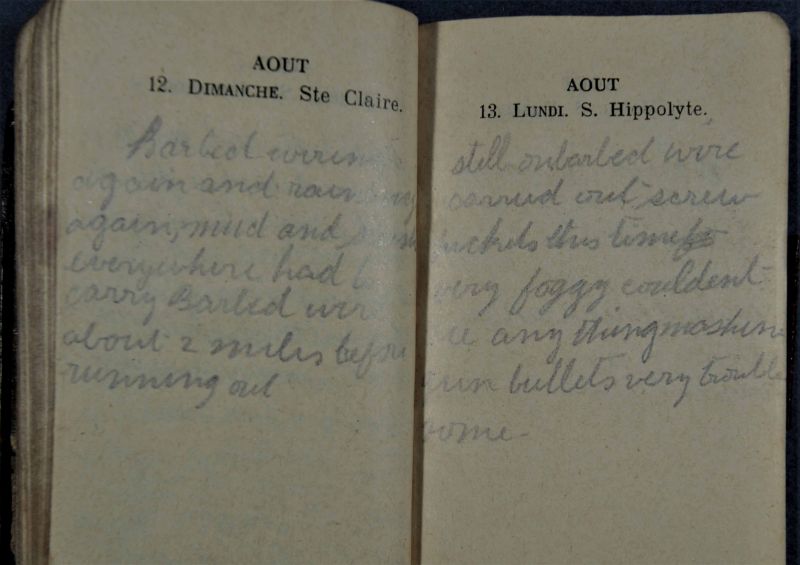 AOUT
12. DIMANCHE. Ste Claire.
Barbed wiring
again and raining
again, mud and
everywhere had
carry Barbed wire
about 2 miles before
running out
AOUT
13. LUNDI. S. Hippolyte.
still onbarbed wire
carried out screw
pickets this time
very foggy couldent
see any thing mashine
gun bullets very trouble
some